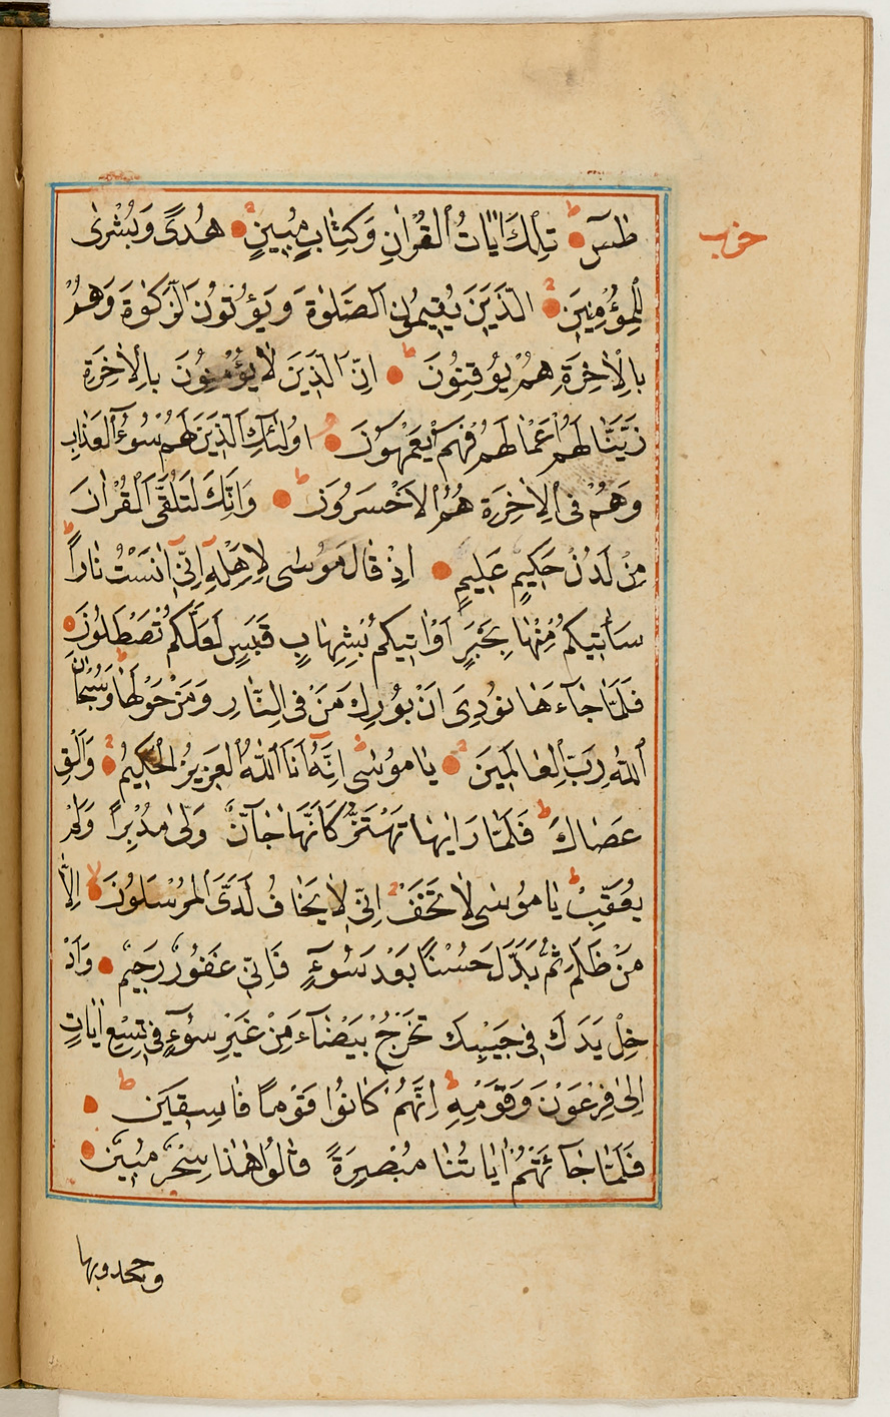 طٰسٓ تِلْكَ اٰيَاتُ الْقُرْاٰنِ وَكِتَابٍ مُبٖينٍ هُدًى وَبُشْرٰى
حزب
لِلْمُؤْمِنٖينَ اَلَّذٖينَ يُقٖيمُونَ الصَّلٰوةَ وَيُؤْتُونَ الزَّكٰوةَ وَهُمْ
بِالْاٰخِرَةِ هُمْ يُوقِنُونَ اِنَّ الَّذٖينَ لَا يُؤْمِنُونَ بِالْاٰخِرَةِ
زَيَّنَّا لَهُمْ اَعْمَالَهُمْ فَهُمْ يَعْمَهُونَ اُولٰئِكَ الَّذٖينَ لَهُمْ سُوٓءُ الْعَذَابِ
وَهُمْ فِى الْاٰخِرَةِ هُمُ الْاَخْسَرُونَ وَاِنَّكَ لَتُلَقَّى الْقُرْاٰنَ
مِنْ لَدُنْ حَكٖيمٍ عَلٖيمٍ اِذْ قَالَ مُوسٰى لِاَهْلِهٖٓ اِنّٖٓى اٰنَسْتُ نَارًا
سَاٰتٖيكُمْ مِنْهَا بِخَبَرٍ اَوْ اٰتٖيكُمْ بِشِهَابٍ قَبَسٍ لَعَلَّكُمْ تَصْطَلُونَ
فَلَمَّا جَٓاءَهَا نُودِىَ اَنْ بُورِكَ مَنْ فِى النَّارِ وَمَنْ حَوْلَهَا وَسُبْحَانَ
اللّٰهِ رَبِّ الْعَالَمٖينَ يَا مُوسٰٓى اِنَّهُٓ اَنَا اللّٰهُ الْعَزٖيزُ الْحَكٖيمُ وَاَلْقِ
عَصَاكَ فَلَمَّا رَاٰيهَا تَهْتَزُّ كَاَنَّهَا جَٓانٌّ وَلّٰى مُدْبِرًا وَلَمْ
يُعَقِّبْ يَا مُوسٰى لَا تَخَفْ اِنّٖى لَا يَخَافُ لَدَىَّ الْمُرْسَلُونَ اِلَّا
مَنْ ظَلَمَ ثُمَّ بَدَّلَ حُسْنًا بَعْدَ سُوٓءٍ فَاِنّٖى غَفُورٌ رَحٖيمٌ وَاَدْ
خِلْ يَدَكَ فٖى جَيْبِكَ تَخْرُجْ بَيْضَٓاءَ مِنْ غَيْرِ سُوٓءٍ فٖى تِسْعِ اٰيَاتٍ
اِلٰى فِرْعَوْنَ وَقَوْمِهٖ اِنَّهُمْ كَانُوا قَوْمًا فَاسِقٖينَ
فَلَمَّا جَٓاءَتْهُمْ اٰيَاتُنَا مُبْصِرَةً قَالُوا هٰذَا سِحْرٌ مُبٖينٌ
وجحدوبها